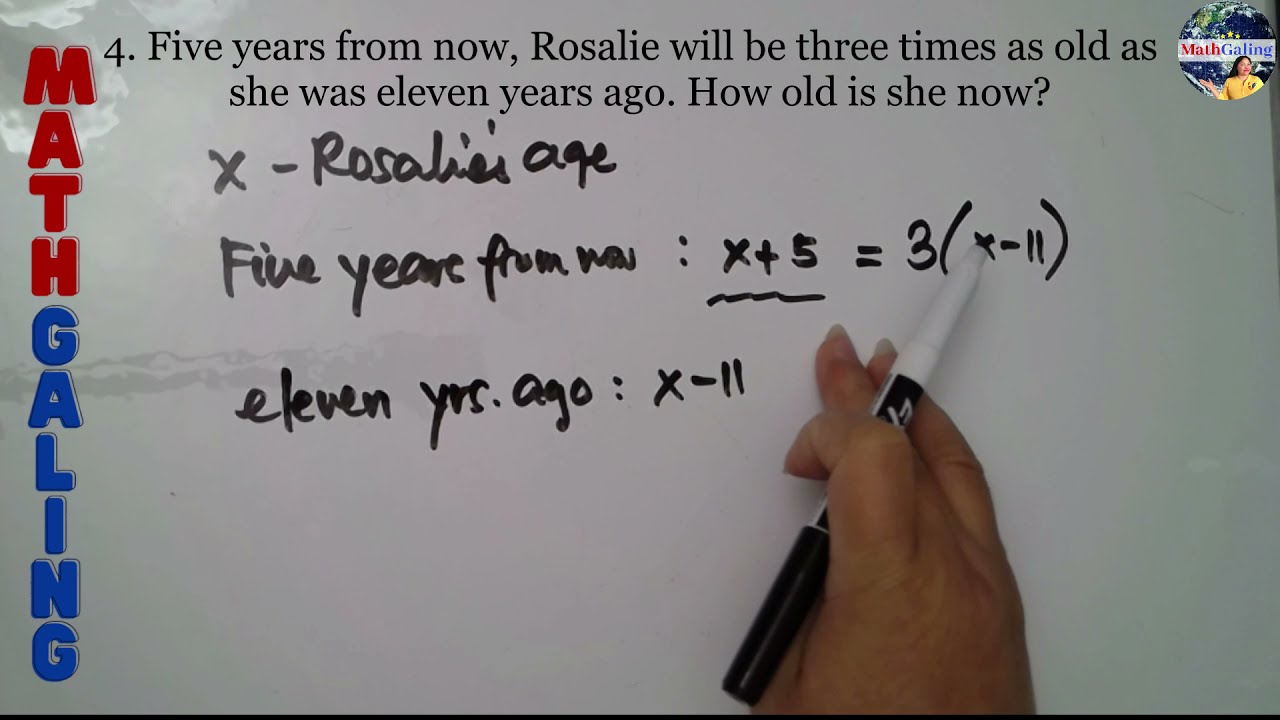 4. Five years from now, Rosalie will be three times as old as
she was eleven years ago. How old is she now?
MathGaling
MATH GALING
x - Rosalie's age
Five years from now : x+5 = 3(x-11)
eleven yrs. ago : x-11